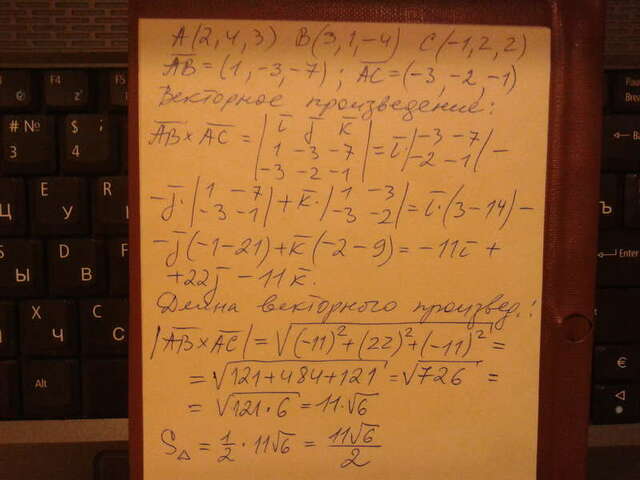 A(2,4,3) B(3,1,-4) C(-1,2,2)
AB̅ = (1, -3, -7); AC̅ = (-3, -2, -1)
Векторное произведение:
AB̅ × AC̅ = | i̅ j̅ k̅ ; 1 -3 -7 ; -3 -2 -1 | = i̅·| -3 -7 ; -2 -1 | -
- j̅·| 1 -7 ; -3 -1 | + k̅·| 1 -3 ; -3 -2 | = i̅·(3-14) -
- j̅(-1-21) + k̅(-2-9) = -11i̅ +
+22j̅ - 11k̅.
Длина векторного произвед.:
|AB̅ × AC̅| = √((-11)² + (22)² + (-11)²) =
= √(121+484+121) = √726 =
= √(121·6) = 11·√6
S△ = 1/2 · 11√6 = 11√6/2
F4
F5
# №
3
$ ;
4
E
У
R
Alt
Enter
€